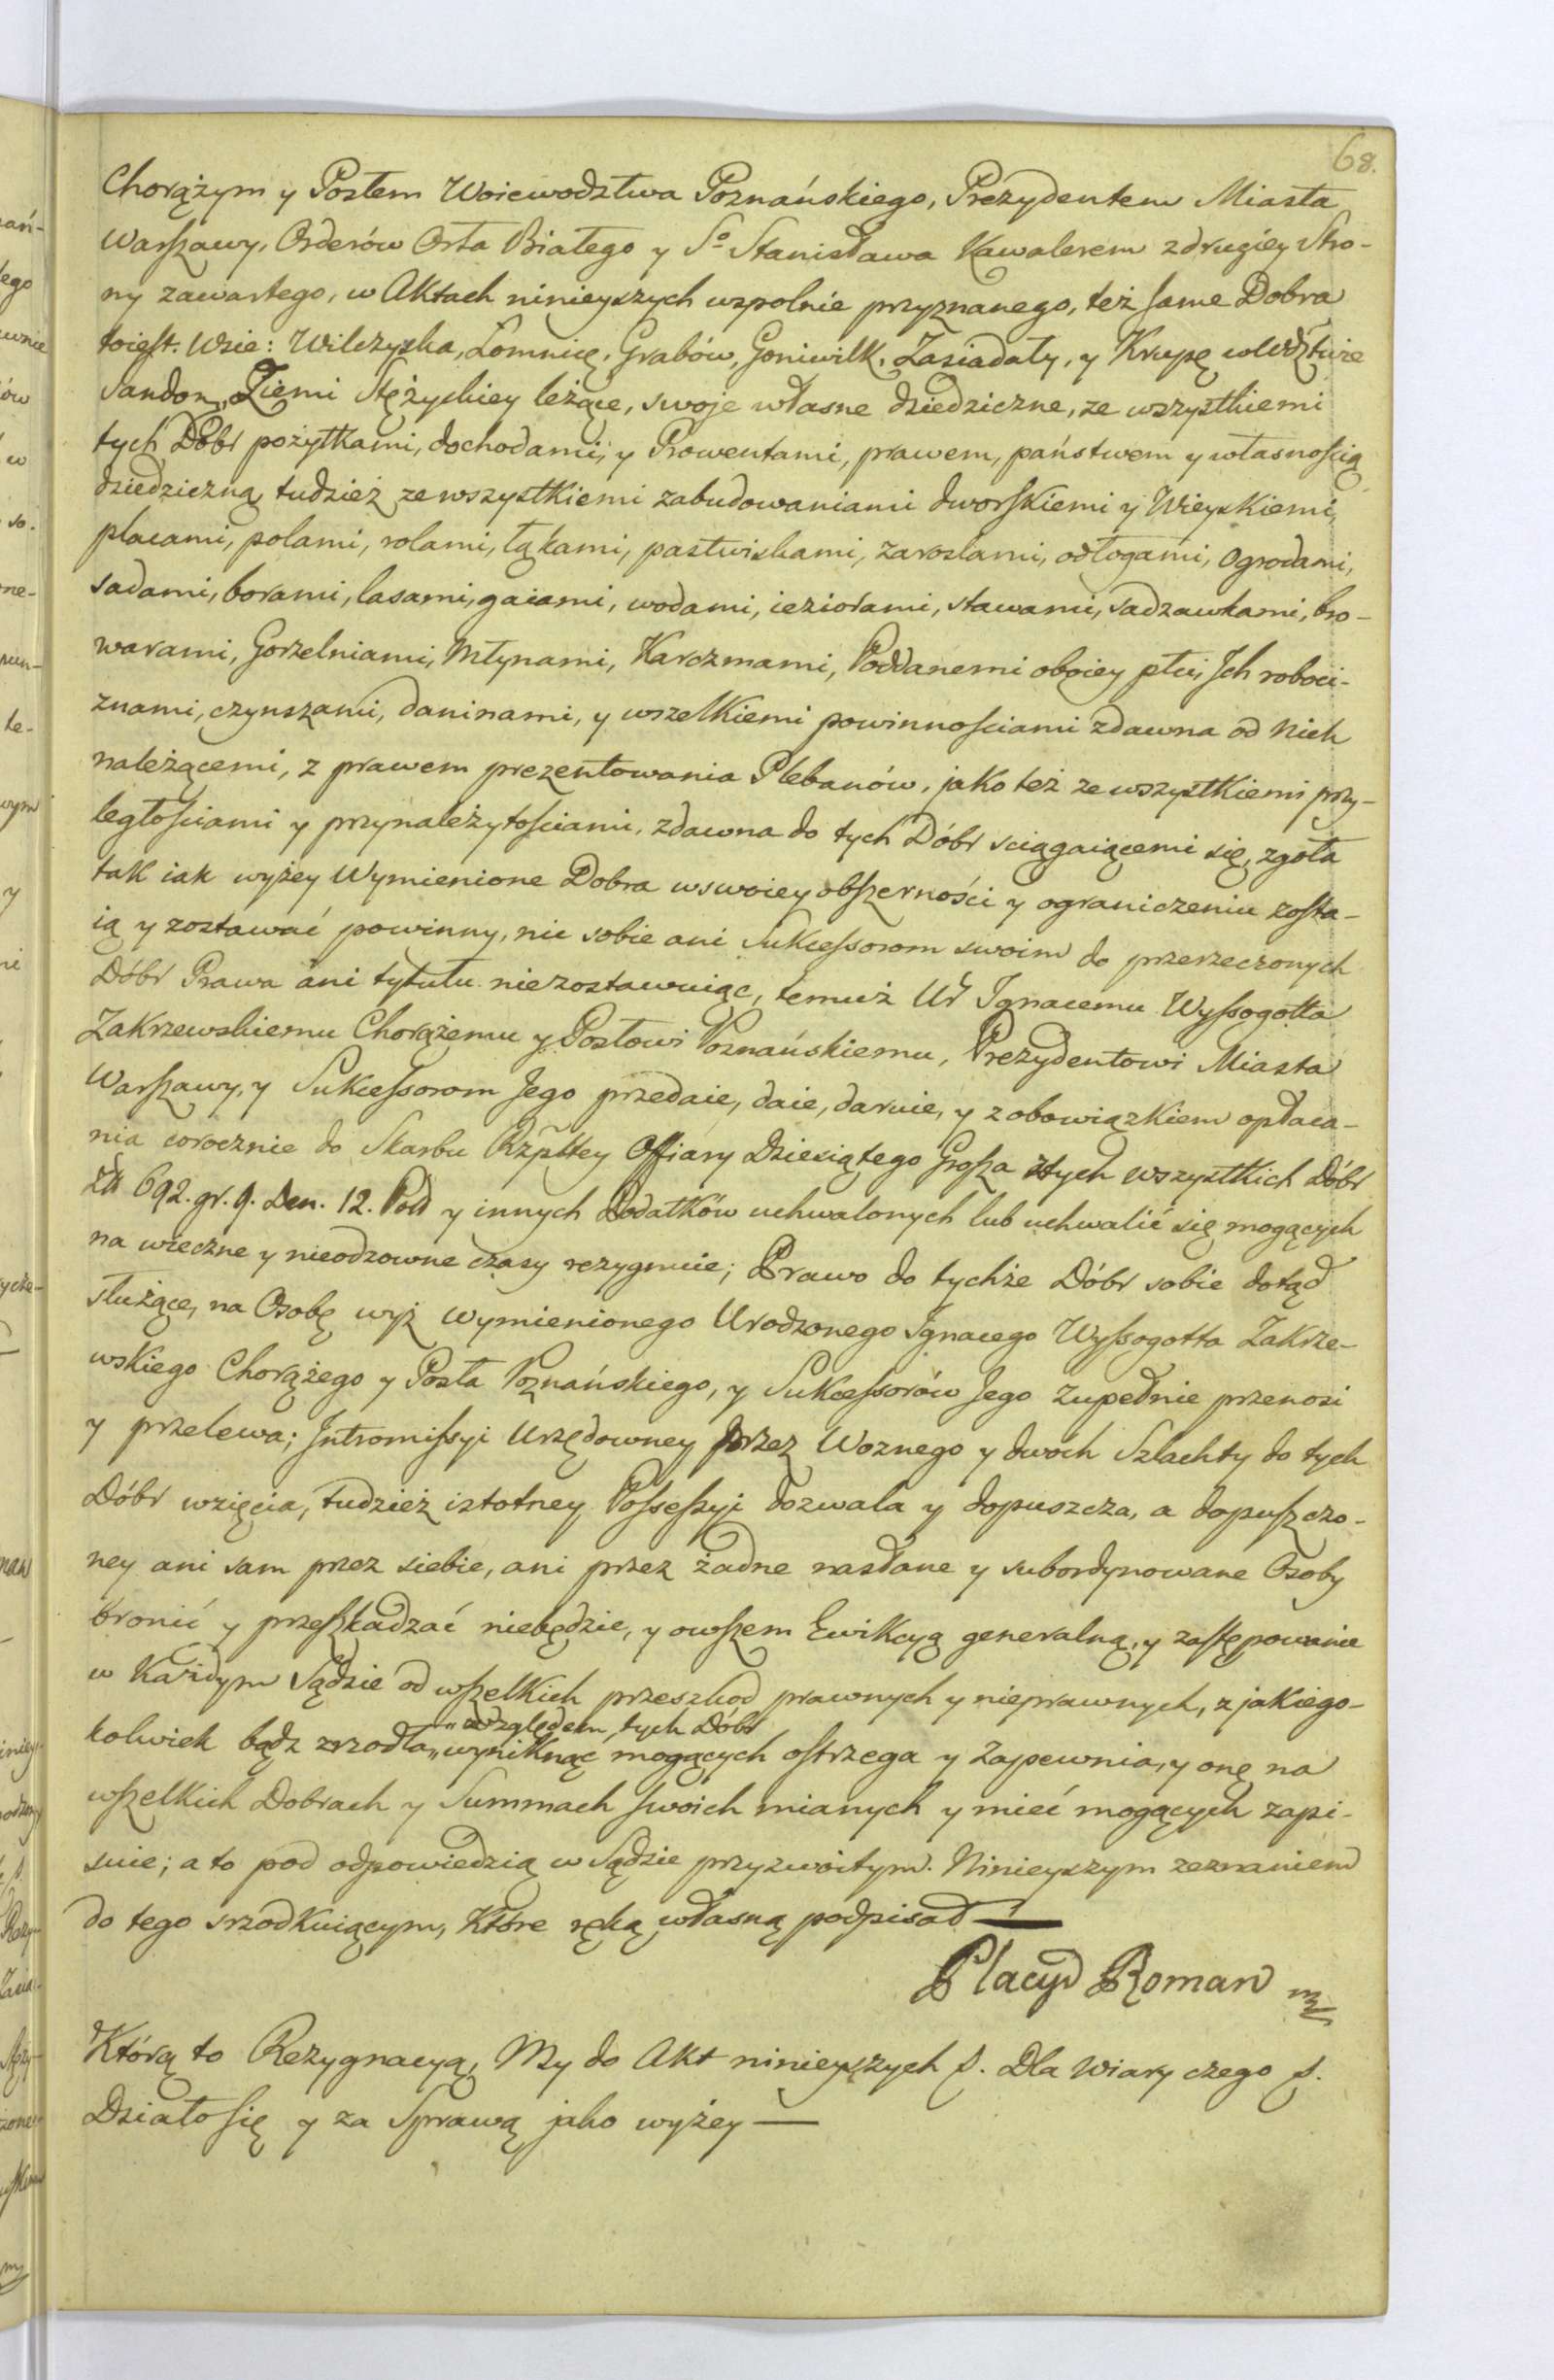 68.
Chorążym y Posłem Woiewodztwa Poznańskiego, Prezydentem Miasta
Warszawy, Orderów Orła Białego y So Stanisława Kawalerem z drugiéy Stro-
ny zawartego, w Aktach ninieyszych wspolnie przyznanego, też same Dobra
toiest. Wsie: Wilczyska, Łomnicę, Grabów, Goniwilk, Zasiadały, y Krupę w Wdztwie
Sandom, Ziemi Stężyckiey leżące, swoje własne dziedziczne, ze wszystkiemi
tych Dóbr pożytkami, dochodami, y Prowentami, prawem, państwem y własnością
dziedziczną, tudzież ze wszystkiemi zabudowaniami dworskiemi y Wieyskiemi,
placami, polami, rolami, łąkami, pastwiskami, zaroslami, odłogami, Ogrodami,
sadami, borami, lasami, gaiami, wodami, ieziorami, stawami, sadzawkami, bro-
warami, Gorzelniami, Młynami, Karczmami, Poddanemi oboiey płci, Jch roboci-
znami, czynszami, daninami, y wszelkiemi powinnościami zdawna od Nich
należącemi, z prawem prezentowania Plebanów, jako też ze wszystkiemi przy-
ległościami y przynależytościami, zdawna do tych Dóbr sciągaiącemi się, zgoła
tak iak wyżey Wymienione Dobra w swoiey obszerności y ograniczeniu zosta-
ią y zostawać powinny, nic sobie ani Sukcessorom swoim do przerzeczonych
Dóbr Prawa ani tytułu niezostawuiąc, temuż Ur Ignacemu Wyssogotta
Zakrzewskiemu Chorążemu y Posłowi Poznańskiemu, Prezydentowi Miasta
Warszawy, y Sukcessorom Jego przedaie, daie, daruie, y z obowiązkiem opłaca-
nia corocznie do Skarbu Rzpltey Offiary Dziesiątego Grosza z tych wszystkich Dóbr
Zł 692. gr. 9. Den. 12. Pold y innych Podatków uchwalonych lub uchwalić się mogących
na wieczne y nieodzowne czasy rezygnuie; Prawo do tychże Dóbr sobie dotąd
służące, na Osobę wyż Wymienionego Urodzonego Ignacego Wyssogotta Zakrze-
wskiego Chorążego y Posła Poznańskiego, y Sukcessorów Jego zupełnie przenosi
y przelewa; Jntromissyi Urzędowney przez Woznego y dwoch Szlachty do tych
Dóbr wzięcia, tudzież istotney Possessyi dozwala y dopuszcza, a dopuszczo-
ney ani sam przez siebie, ani przez żadne nasłane y subordynowane Osoby
bronić y przeszkadzać niebędzie, y owszem Ewikcyą generalną, y zastępowanie
w Każdym Sądzie od wszelkich przeszkod prawnych y nieprawnych, z jakiego-
"względem tych Dóbr
kolwiek bądz zrzodła" wyniknąc mogących ostrzega y zapewnia, y onę na
wszelkich Dobrach y Summach swoich mianych y mieć mogących zapi-
suie; a to pod odpowiedzią w Sądzie przyzwoitym. Ninieyszym zeznaniem
do tego srzodkuiącym, Które ręką własną podpisał —
Placyd Roman mp
Którą to Rezygnacyą, My do Akt ninieyszych s. Dla Wiary czego s.
Działo się y za Sprawą jako wyżey —